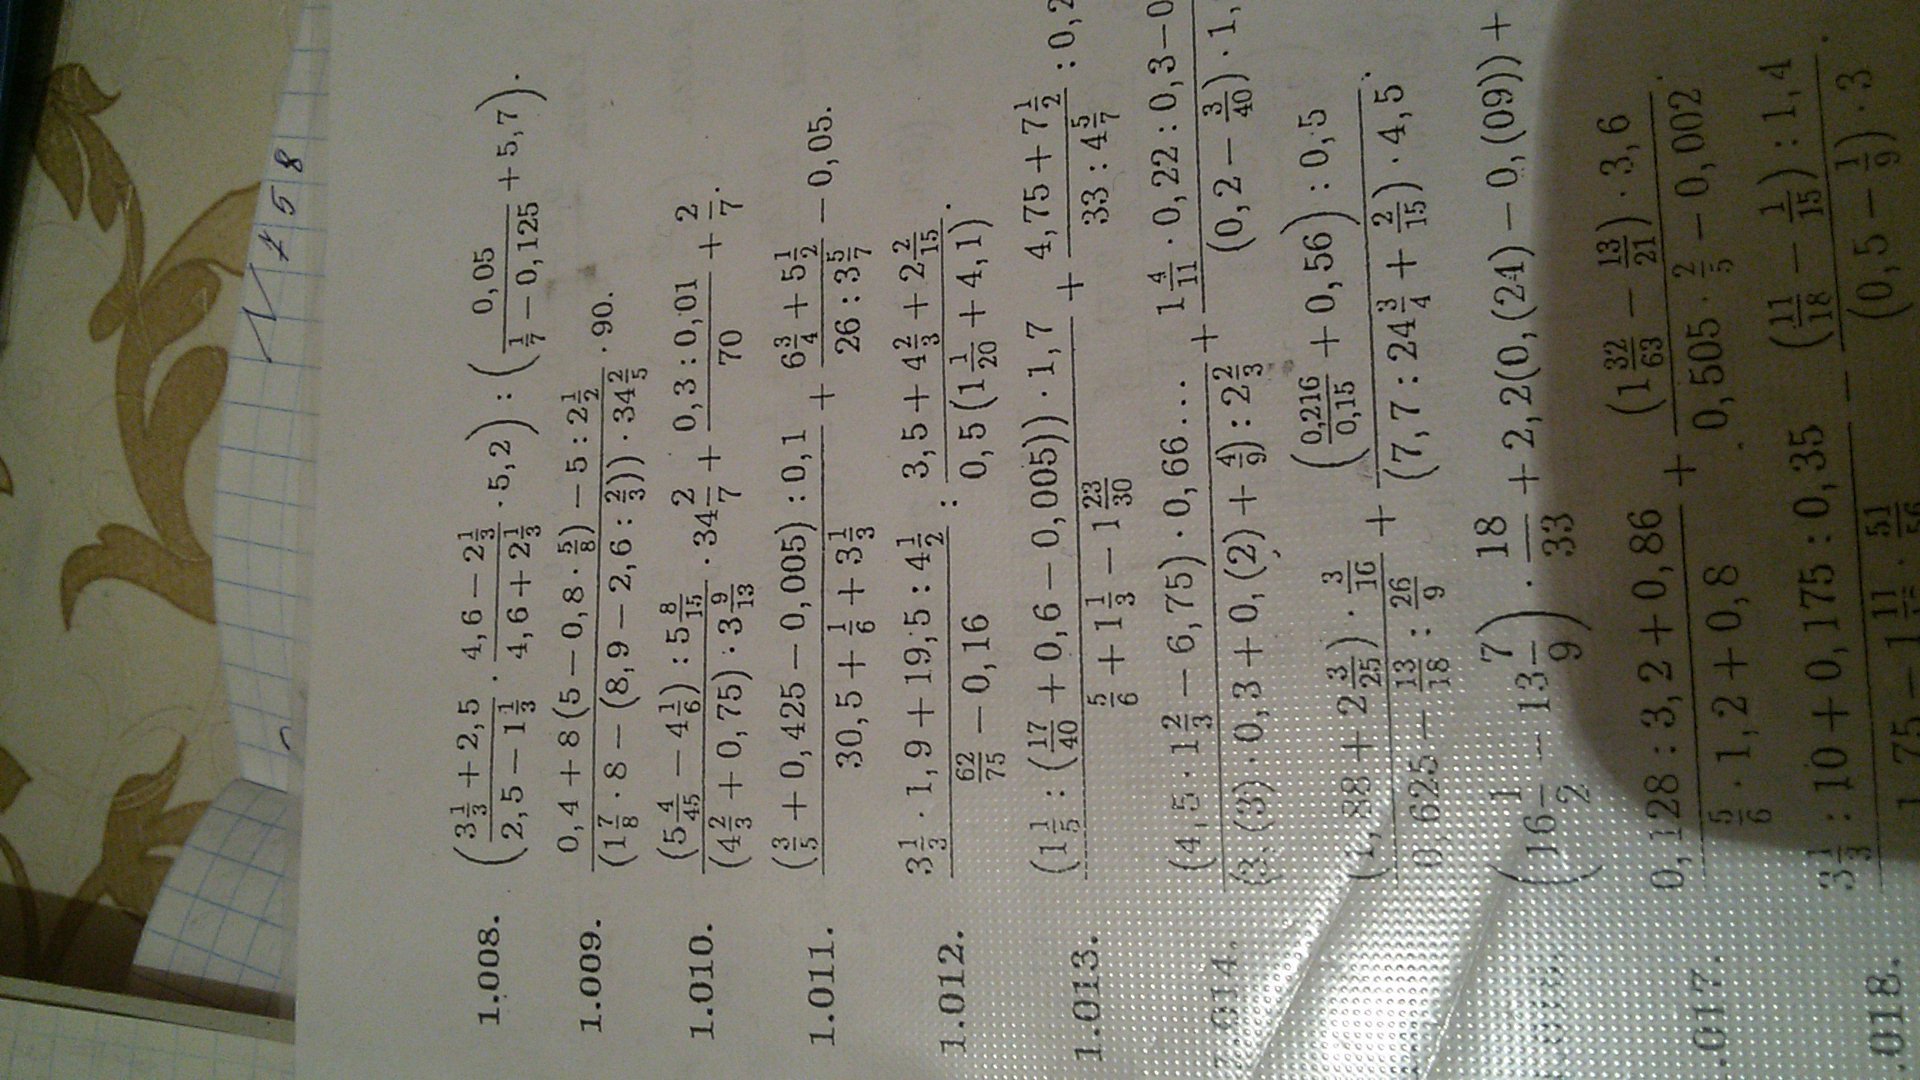 № 158
1.008. ((3 1/3 + 2,5)/(2,5 − 1 1/3) · (4,6 − 2 1/3)/(4,6 + 2 1/3) · 5,2) : (0,05/(1/7 − 0,125) + 5,7).
1.009. (0,4 + 8(5 − 0,8 · 5/8) − 5 : 2 1/2)/((1 7/8 · 8 − (8,9 − 2,6 : 2/3)) · 34 2/5) · 90.
1.010. ((5 4/45 − 4 1/6) : 5 8/15)/((4 2/3 + 0,75) : 3 9/13) · 34 2/7 + (0,3 : 0,01)/70 + 2/7.
1.011. ((3/5 + 0,425 − 0,005) : 0,1)/(30,5 + 1/6 + 3 1/3) + (6 3/4 + 5 1/2)/(26 : 3 5/7) − 0,05.
1.012. (3 1/3 · 1,9 + 19,5 : 4 1/2)/(62/75 − 0,16) : (3,5 + 4 2/3 + 2 2/15)/(0,5(1 1/20 + 4,1)).
1.013. ((1 1/5 : (17/40 + 0,6 − 0,005)) · 1,7)/(5/6 + 1 1/3 − 1 23/30) + (4,75 + 7 1/2)/(33 : 4 5/7) : 0,2
1.014. ((4,5 · 1 2/3 − 6,75) · 0,66...)/((3,(3) · 0,3 + 0,(2) + 4/9) : 2 2/3) + (1 4/11 · 0,22 : 0,3 − 0)/((0,2 − 3/40) · 1,
((1,88 + 2 3/25) · 3/16)/(0,625 − 13/18 : 26/9) + ((0,216/0,15 + 0,56) : 0,5)/((7,7 : 24 3/4 + 2/15) · 4,5).
(16 1/2 − 13 7/9) · 18/33 + 2,2(0,(24) − 0,(09)) +
.017. (0,128 : 3,2 + 0,86)/(5/6 · 1,2 + 0,8) + ((1 32/63 − 13/21) · 3,6)/(0,505 · 2/5 − 0,002).
.018. (3 1/3 : 10 + 0,175 : 0,35)/(1,75 − 1 11/ · 51/56) − ((11/18 − 1/15) : 1,4)/((0,5 − 1/9) · 3).